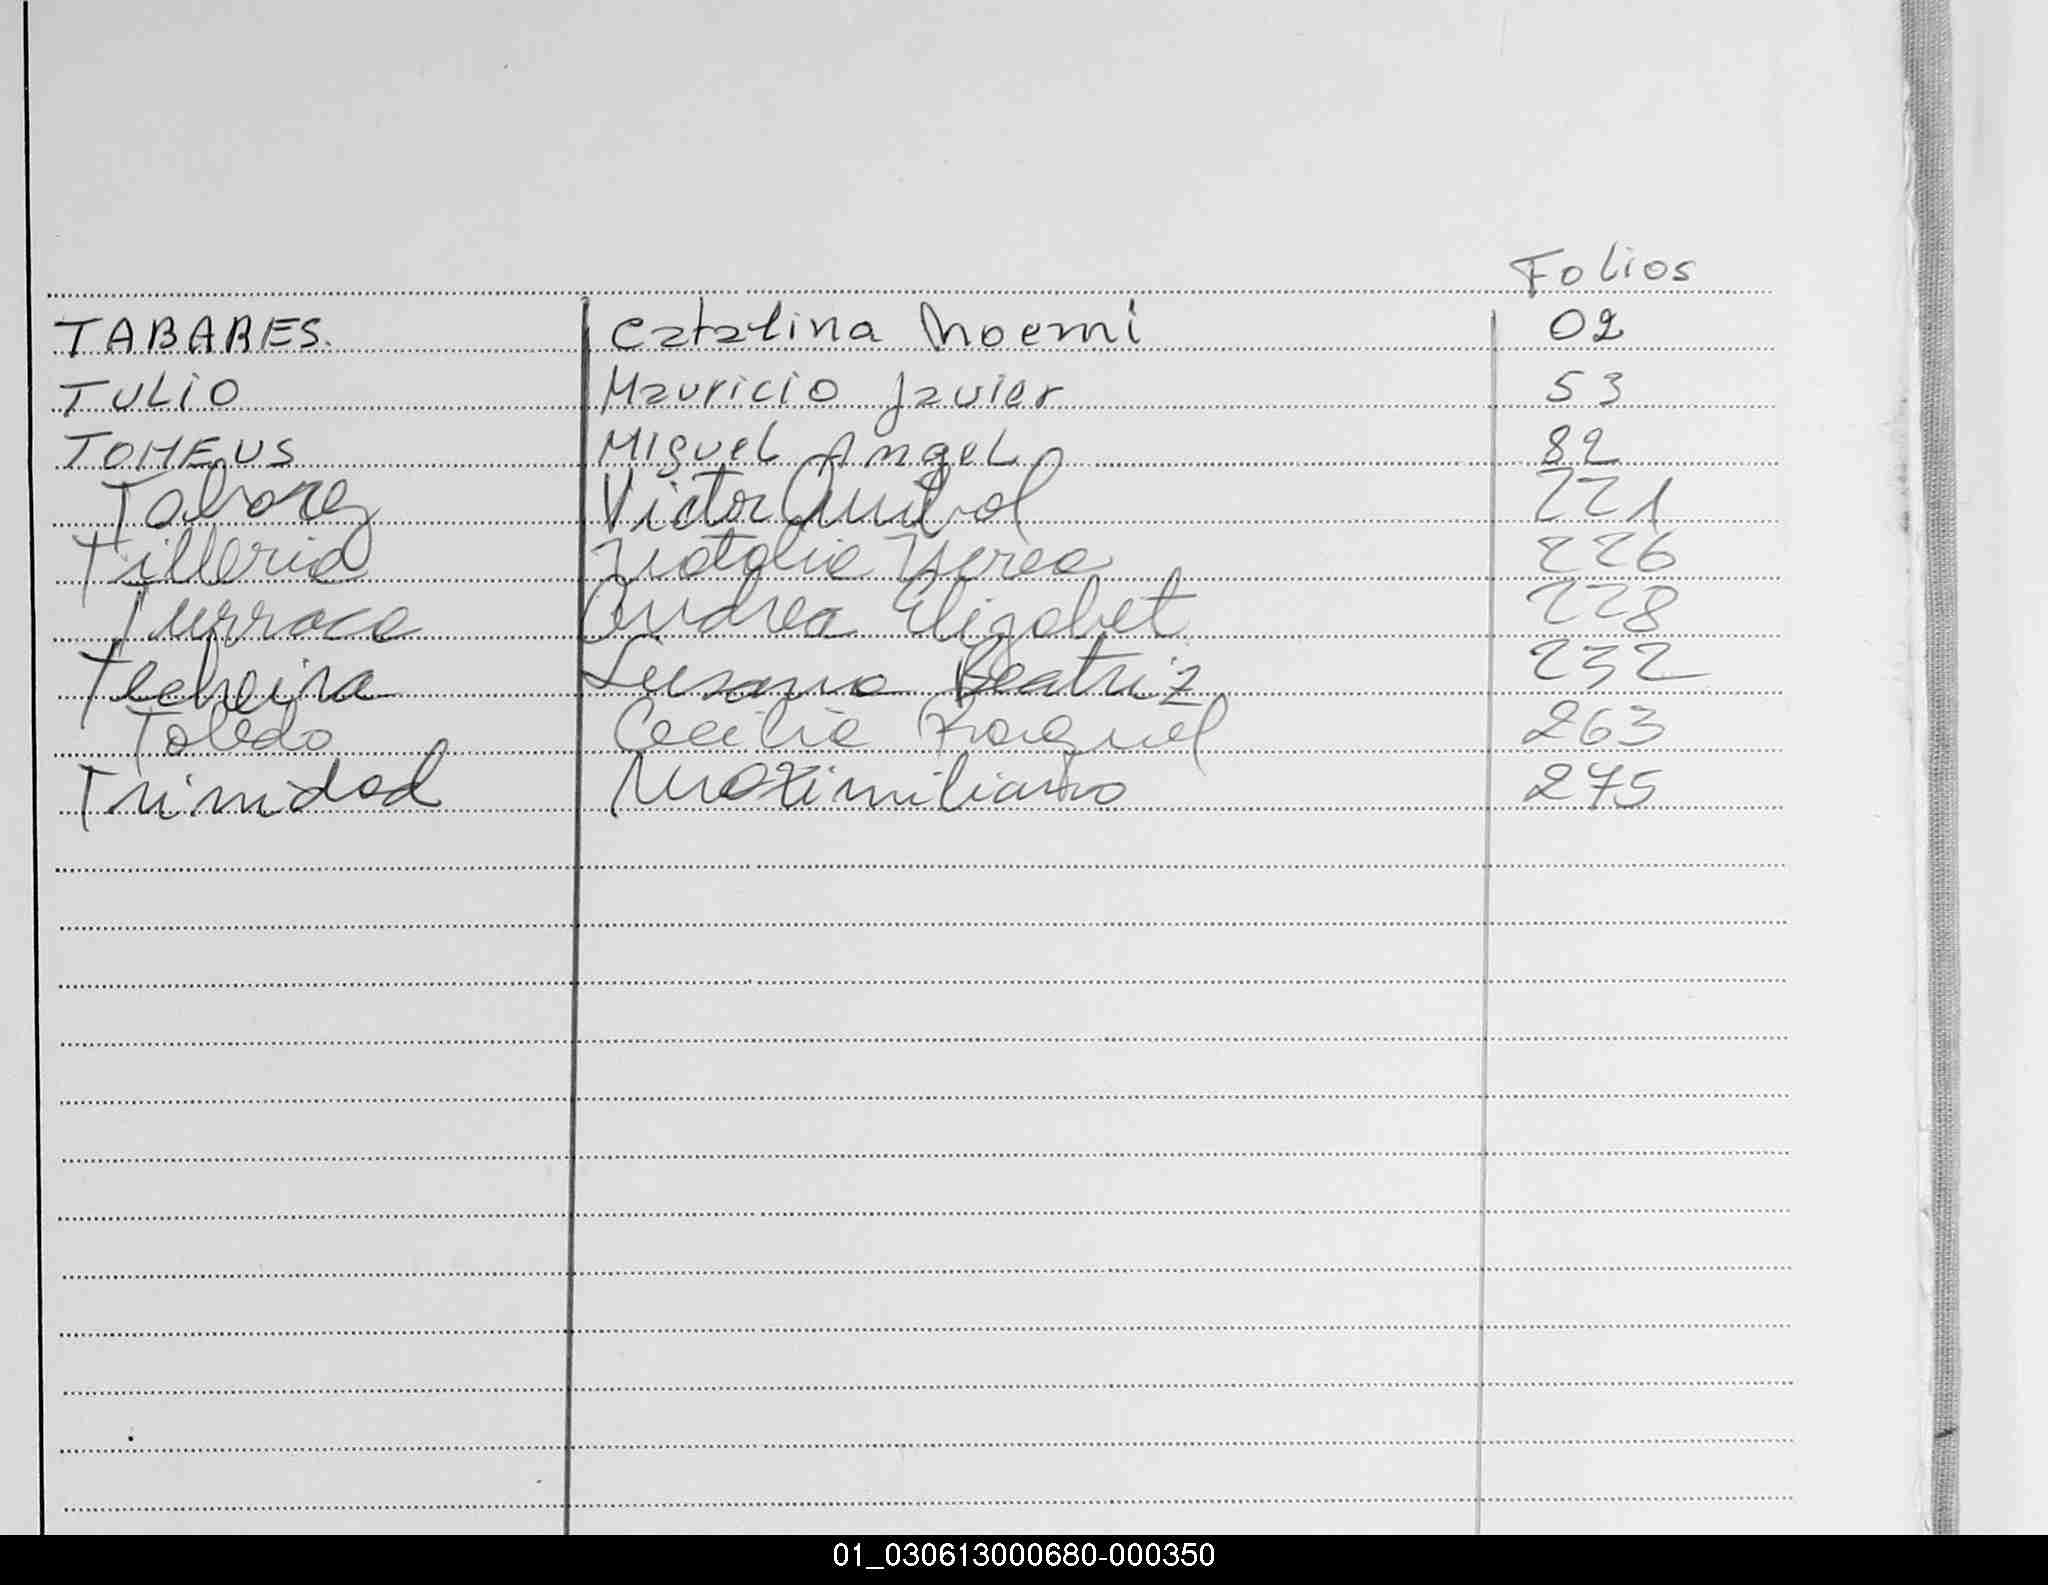 Folios
TABARES. Catalina Noemi 02
TULIO Mauricio Javier 53
TOMEUS Miguel Angel 82
Talvarez Victor Anibal 221
Tilleria Natalia Yerea 226
Turraca Andrea Elizabet 228
Techeira Susana Beatriz 232
Toledo Cecilia Raquel 263
Trinidad Maximiliano 275
01_030613000680-000350